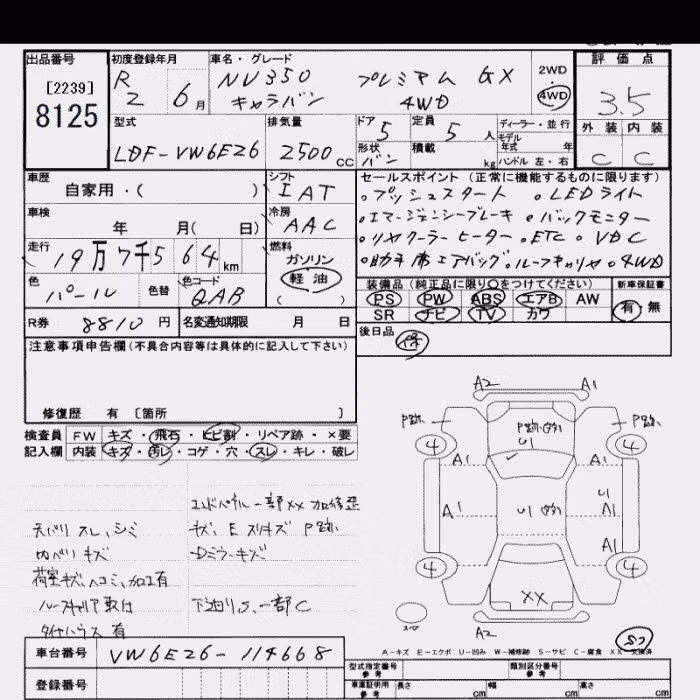 出品番号
[2239]
8125
初度登録年月
R2 6月
車名・グレード
NV350 プレミアム GX
キャラバン 4WD
2WD
4WD
評価点
3.5
外装 内装
C C
型式
LDF-VW6E26
排気量
2500cc
ドア 5
定員 5人
形状 バン
積載 kg
ディーラー・並行
モデル年式 年
ハンドル 左・右
車歴
自家用・( )
シフト
IAT
車検
年 月( 日)
冷房
AAC
走行
19万7千564km
燃料
ガソリン
軽油
( )
色
パール
色替
色コード
QAB
R券 8810円
名変通知期限 月 日
セールスポイント (正常に機能するものに限ります)
・プッシュスタート ・LEDライト
・エマージェンシーブレーキ ・バックモニター
・リヤクーラーヒーター ・ETC ・VDC
・助手席エアバッグ ・ルーフキャリヤ ・4WD
装備品 (純正品に限り○をつけてください)
新車保証書
PS PW ABS エアB AW
SR ナビ TV カワ
有・無
後日品
保
注意事項申告欄(不具合内容等は具体的に記入して下さい)
修復歴 有 [箇所 ]
検査員記入欄
FW キズ・飛石・ヒビ割・リペア跡・×要
内装 キズ・汚レ・コゲ・穴・スレ・キレ・破レ
天バリ スレ、シミ
内バリ キズ
荷室キズ、ヘコミ、加工有
ルーフキャリア取付
タイヤハウス 有
エンドパネル一部XX 加修歪
キズ、E スリキズ P跡
Dミラーキズ
下廻りS、一部C
A2 A1
P跡 P跡
P跡
U1
4 4
A1 A1
A1 U1 U1
A1
A1
4 4
XX
スペア
A2
A-キズ E-エクボ U-凹み W-補修跡 S-サビ C-腐食 XX-交換済
車台番号 VW6E26-114668
登録番号
型式指定番号 参考
類別区分番号 参考
車庫証明用 参考
長さ cm 幅 cm 高さ cm